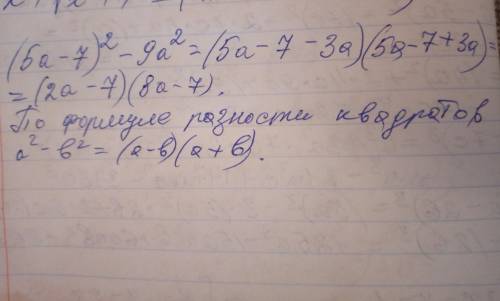 (5a-7)² - 9a² = (5a - 7 - 3a)(5a - 7 + 3a) =
= (2a - 7)(8a - 7).
По формуле разности квадратов
a² - b² = (a-b)(a+b).